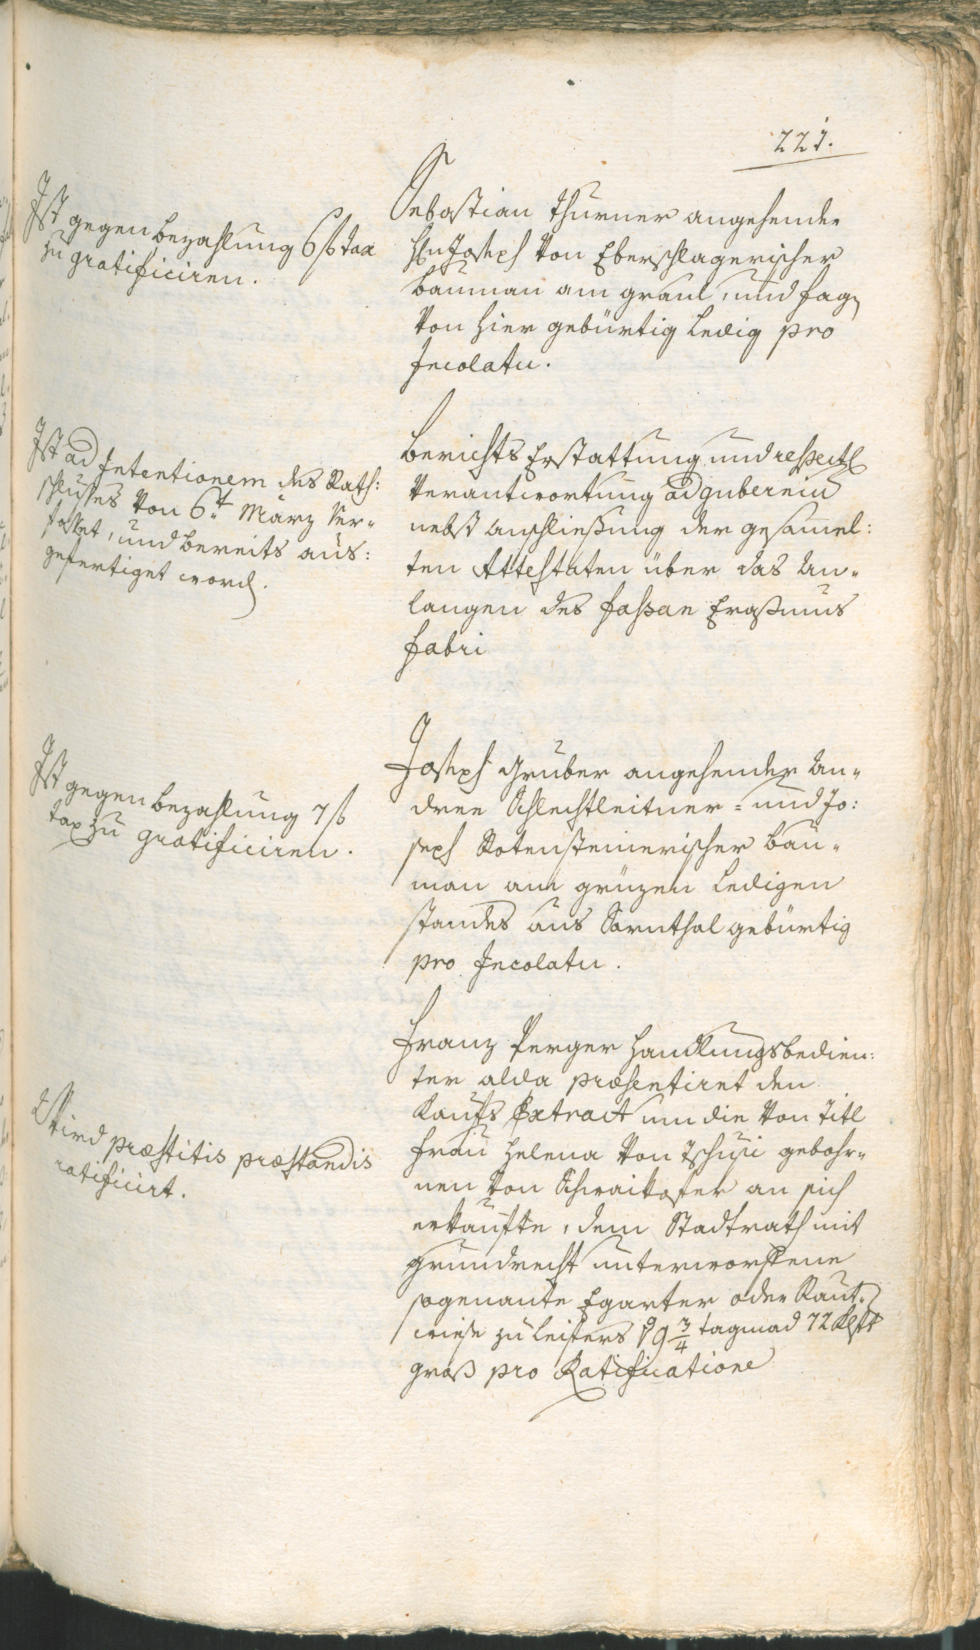 221.
Ist gegen bezahlung 6 f tax
zu gratificiren.
Sebastian Thurner angehender
Joseph von Eberschlagerischer
bauman am graul, und hag
von hier gebürtig ledig pro
Incolatu.
Ist ad Intentionem des Rath:
schlusses von 6t März ver-
fasset, und bereits aus:
gefertiget word.
berichts Erstattung und respectl
Verantwortung ad Gubernium
nebst anschliessung der gesamel:
ten Attestaten über das An-
langen des Erasmus
Fabri
Ist gegen bezahlung 7 f
tax zu gratificiren.
Joseph Gruber angehender An-
dree Schlechtleitner- und Jo:
seph Rotensteinerischer bau-
man am grüzen ledigen
standes aus Sarnthal gebürtig
pro Incolatu.
Wird præstitis præstandis
ratificirt.
Franz Perger Handlungsbedien:
ter alda præsentiret den
Kaufs Extract um die von Titl
Frau Helena von Tschusi gebohr-
nen von Schraitkofer an sich
erkaufte, dem Stadtrath mit
grundrecht unterworfene
sogenante Egarter oder Raut-
wiese zu Leifers 19 3/4 tagmad 72 Klftr
gross pro Ratificatione